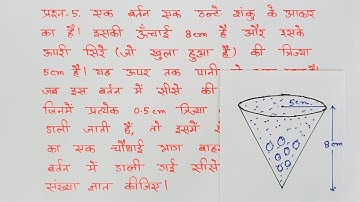 प्रश्न-5. एक बर्तन एक उल्टे शंकु के आकार
का है। इसकी ऊँचाई 8cm है और इसके
ऊपरी सिरे (जो खुला हुआ है) की त्रिज्या
5cm है। यह ऊपर तक पानी
जब इस बर्तन में सीसे की
जिनमें प्रत्येक 0.5cm त्रिज्या
डाली जाती हैं, तो इसमें
का एक चौथाई भाग बाहर
बर्तन में डाली गई सीसे
संख्या ज्ञात कीजिए।
5cm
8cm